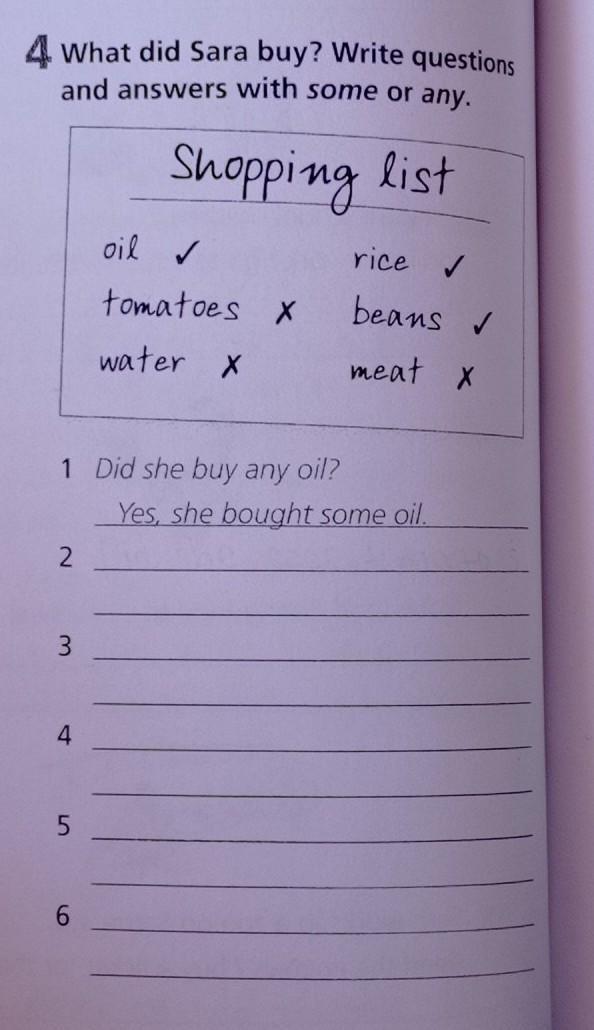 4 What did Sara buy? Write questions
and answers with some or any.
Shopping list
oil ✓ rice ✓
tomatoes ✗ beans ✓
water ✗ meat ✗
1 Did she buy any oil?
Yes, she bought some oil.
2
3
4
5
6